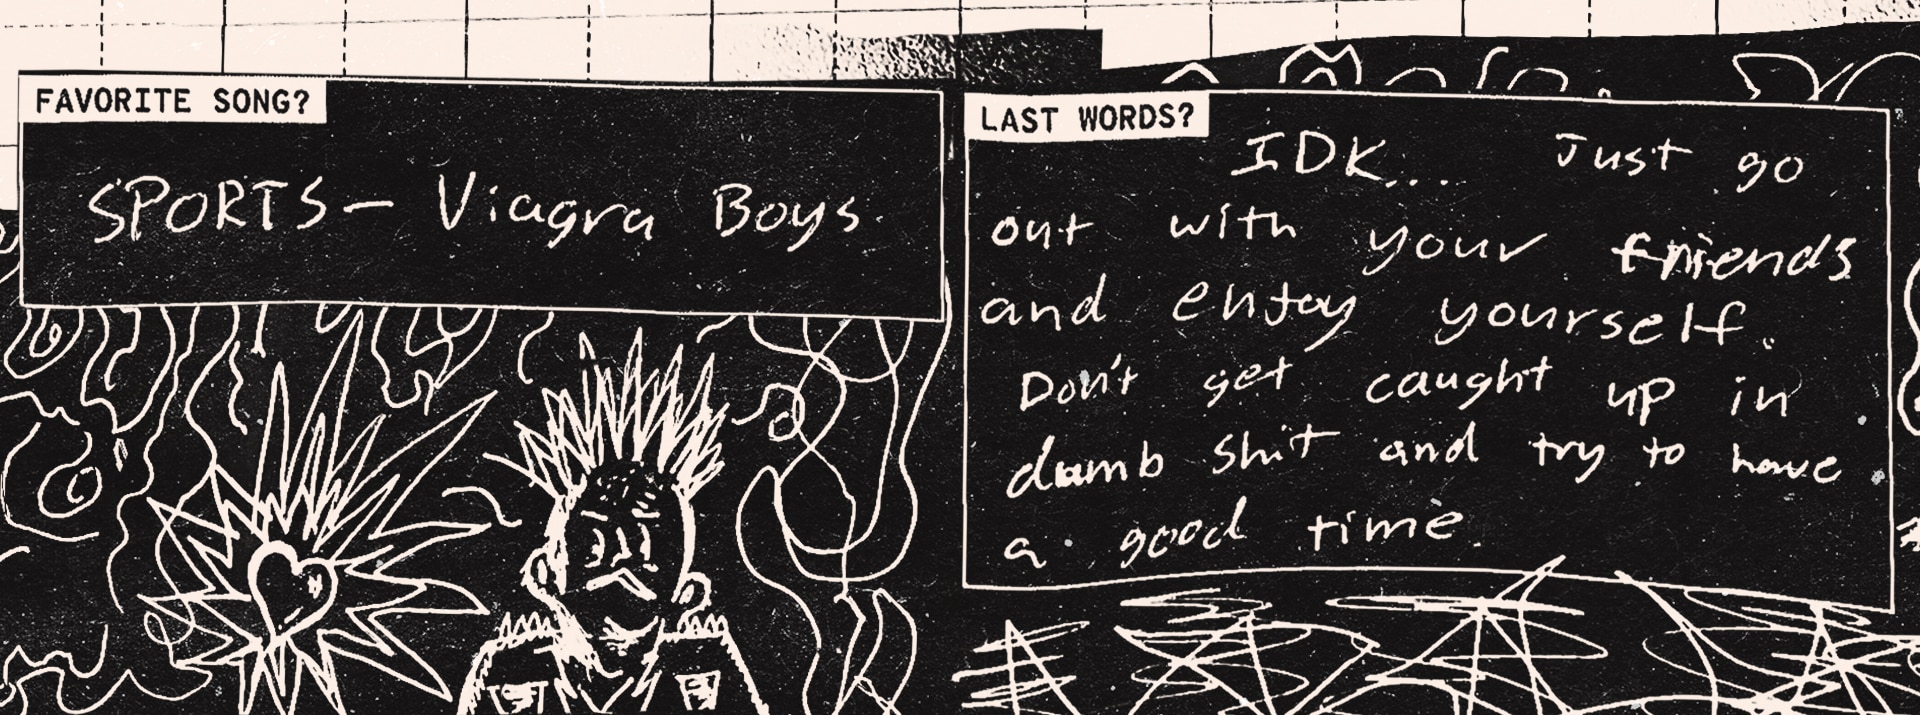 FAVORITE SONG?
SPORTS— Viagra Boys
LAST WORDS?
IDK... Just go
out with your friends
and enjoy yourself.
Don't get caught up in
dumb shit and try to have
a good time